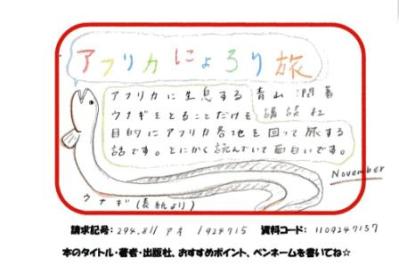 アフリカにょろり旅
アフリカに生息する 青山 潤著
ウナギをとることだけを 講談社
目的にアフリカ各地を回って旅する
話です。とにかく読んでいて面白いです。
November
ウナギ(表紙より)
請求記号: 294.811 アオ 1924715 資料コード: 1109247157
本のタイトル・著者・出版社、おすすめポイント、ペンネームを書いてね☆